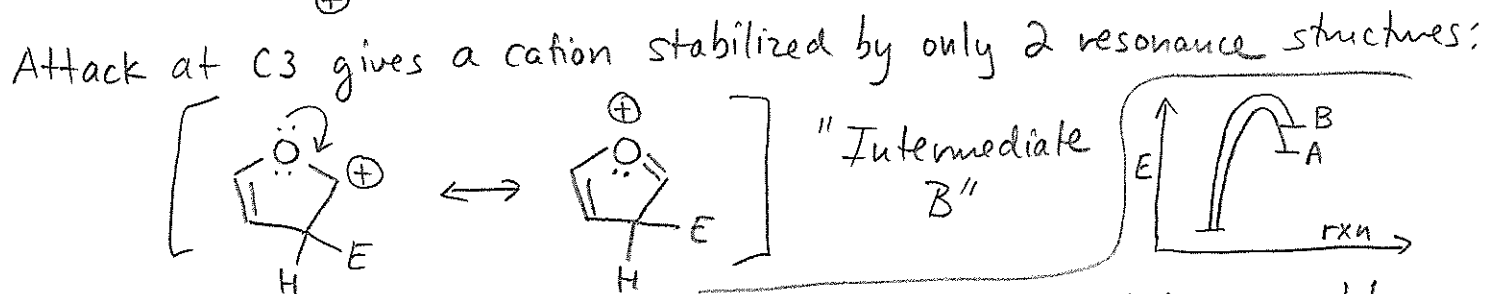 ⊕
Attack at C3 gives a cation stabilized by only 2 resonance structures:
O ⊕ E H
⊕ O E H
"Intermediate
B"
E B A rxn